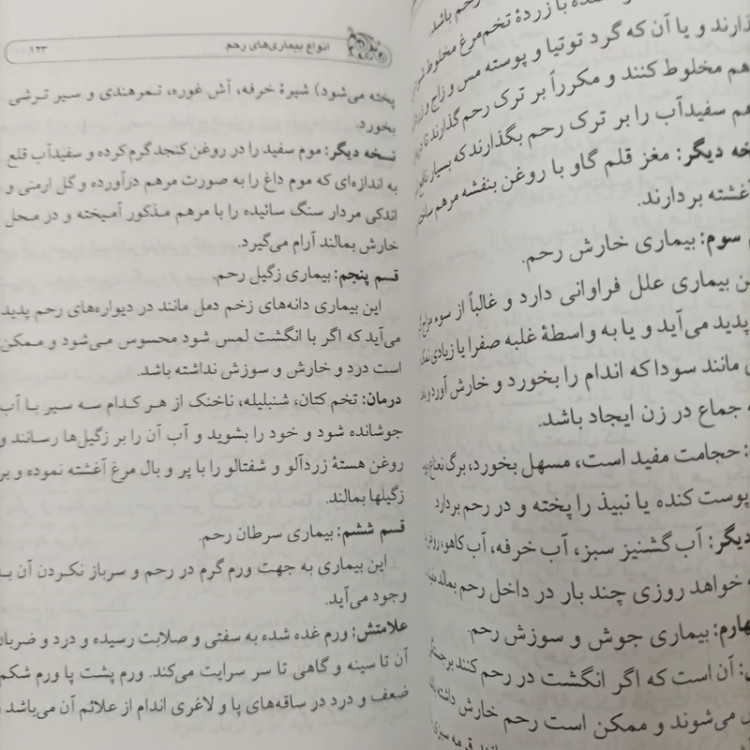 رحم باشد.
با زردهٔ تخم‌مرغ مخلوط
گذارند و یا آن که گرد توتیا و پوسته مس و زاج و
هم مخلوط کنند و مکرراً بر ترک رحم گذارند تا
هم سفیدآب را بر ترک رحم بگذارند که بسیار
دیگر: مغز قلم گاو با روغن بنفشه مرهم
آغشته بردارند.
سوم: بیماری خارش رحم.
بیماری علل فراوانی دارد و غالباً از سوء
پدید می‌آید و یا به واسطهٔ غلبه صفرا یا زیادی
مانند سودا که اندام را بخورد و خارش آورد و
جماع در زن ایجاد باشد.
حجامت مفید است، مسهل بخورد، برگ نعناع
پوست کنده یا نبیذ را پخته و در رحم بردارد
دیگر: آب گشنیز سبز، آب خرفه، آب کاهو، روغن
خواهد روزی چند بار در داخل رحم بمالد
بیماری جوش و سوزش رحم.
آن است که اگر انگشت در رحم کنند
می‌شوند و ممکن است رحم خارش داشته
انواع بیماری‌های رحم ۱۲۳
پخته می‌شود) شیرهٔ خرفه، آش غوره، تمرهندی و سیر ترشی
بخورد.
نسخه دیگر: موم سفید را در روغن کنجد گرم کرده و سفیدآب قلع
به اندازه‌ای که موم داغ را به صورت مرهم درآورده و گل ارمنی و
اندکی مردار سنگ سائیده را با مرهم مذکور آمیخته و در محل
خارش بمالند آرام می‌گیرد.
قسم پنجم: بیماری زگیل رحم.
این بیماری دانه‌های زخم دمل مانند در دیواره‌های رحم پدید
می‌آید که اگر با انگشت لمس شود محسوس می‌شود و ممکن
است درد و خارش و سوزش نداشته باشد.
درمان: تخم کتان، شنبلیله، ناخنک از هر کدام سه سیر با آب
جوشانده شود و خود را بشوید و آب آن را بر زگیل‌ها رسانند و
روغن هستهٔ زردآلو و شفتالو را با پر و بال مرغ آغشته نموده و بر
زگیلها بمالند.
قسم ششم: بیماری سرطان رحم.
این بیماری به جهت ورم گرم در رحم و سرباز نکردن آن به
وجود می‌آید.
علامتش: ورم غده شده به سفتی و صلابت رسیده و درد و ضربان
آن تا سینه و گاهی تا سر سرایت می‌کند. ورم پشت پا ورم شکم
ضعف و درد در ساقه‌های پا و لاغری اندام از علائم آن می‌باشد